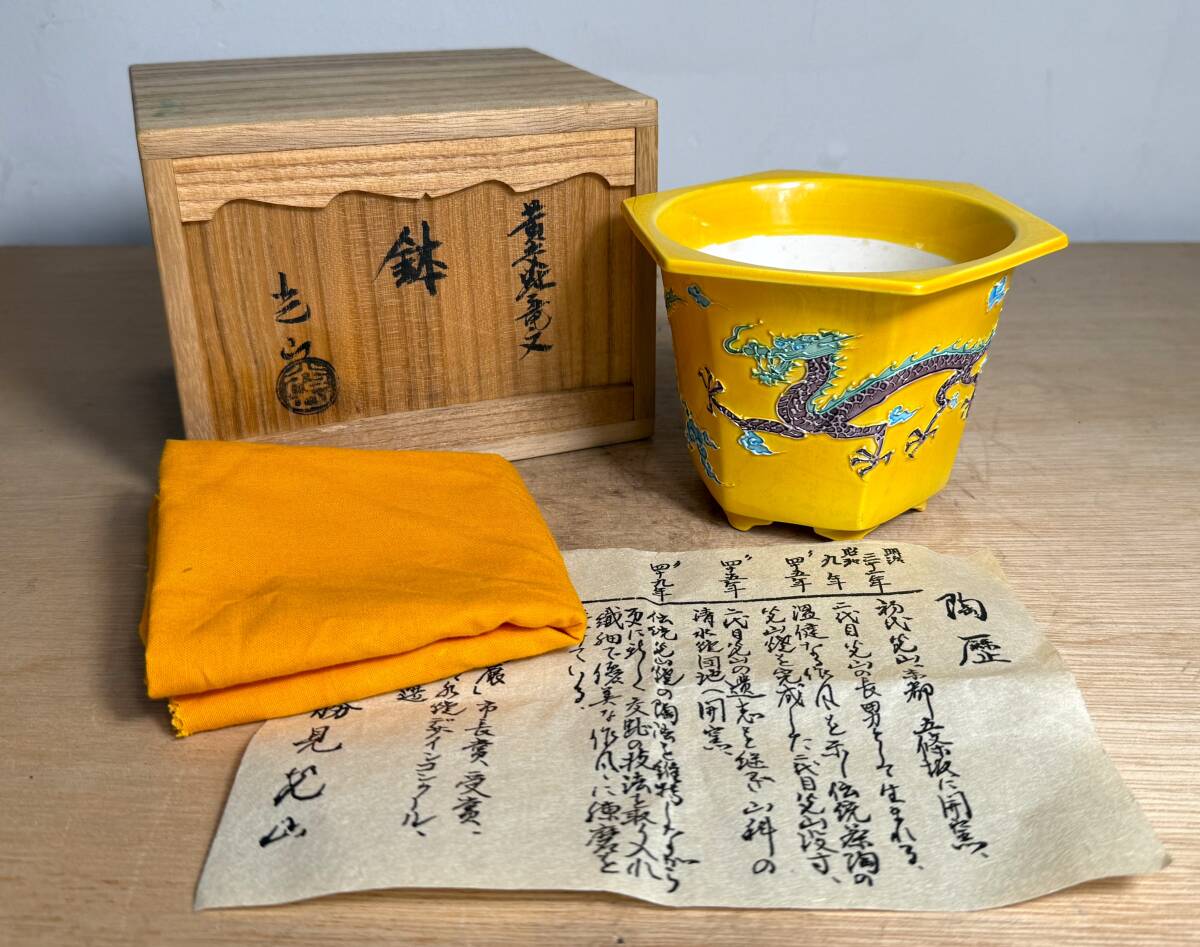 黄交趾竜文
鉢
光山
陶歴
明治三十二年
初代光山京都五條坂に開窯、
昭和九年
二代目光山の長男として生まれる、
温健なる作風を示し伝統茶陶の
〃四十五年
光山燒を完成した二代目光山没す、
〃四十五年
二代目光山の遺志を継ぎ山科の
清水焼団地へ開窯、
〃四十九年
伝統光山燒の陶法を維持しながら
更に新しく交趾の技法を取り入れ
繊細で優美な作風に練磨を
ている
展市長賞受賞、
水焼デザインコンクール、
選
勝見光山